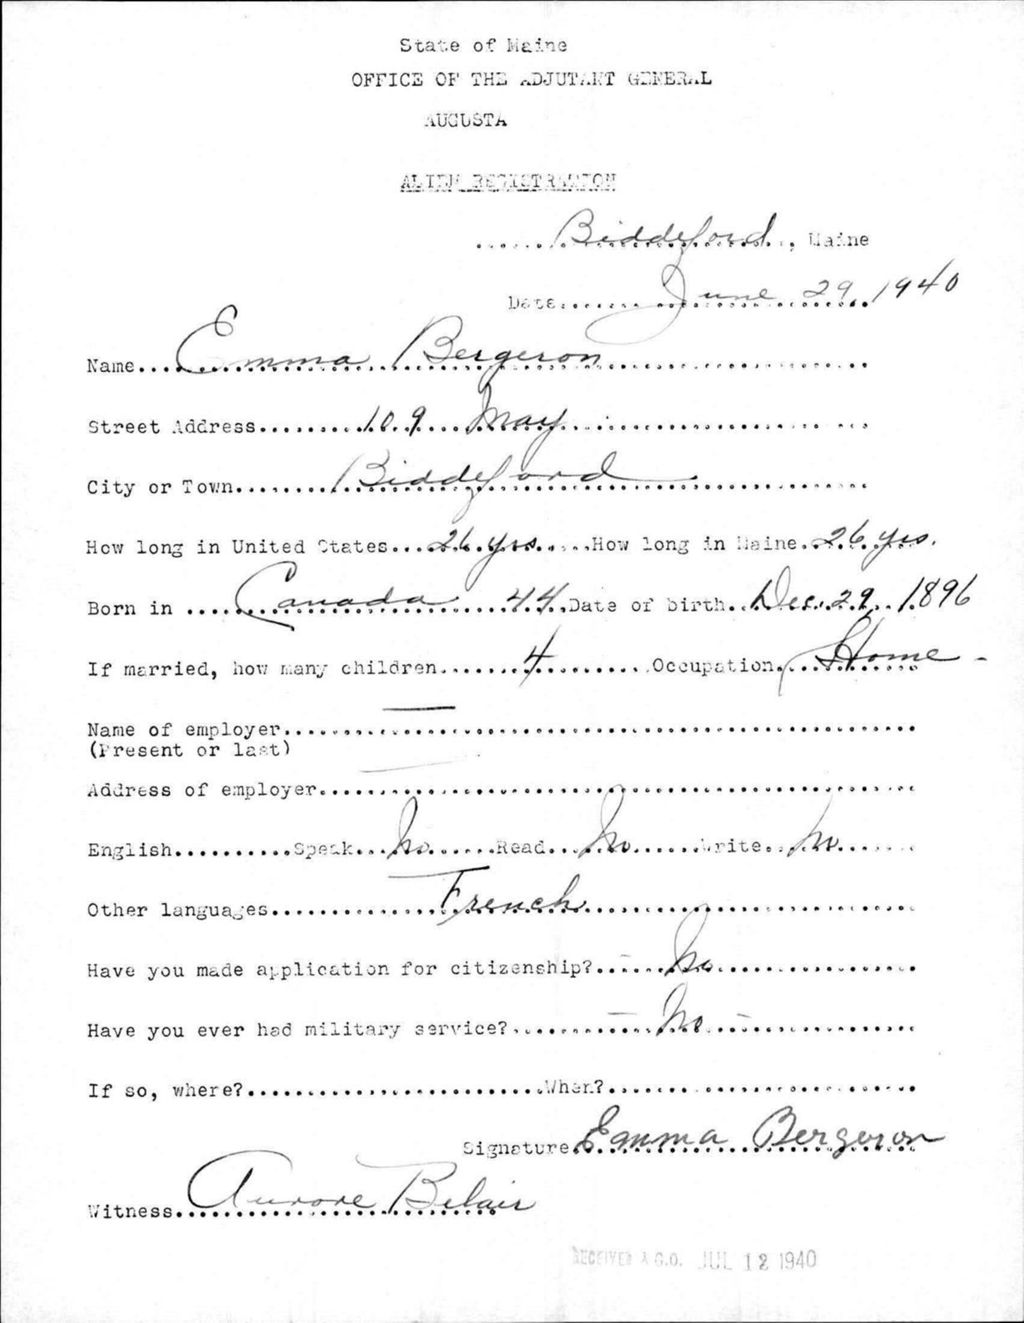 State of Maine
OFFICE OF THE ADJUTANT GENERAL
AUGUSTA
ALIEN REGISTRATION
Biddeford, Maine
Date June 29, 1940
Name Emma Bergeron
Street Address 109 May
City or Town Biddeford
How long in United States 26 yrs. How long in Maine 26 yrs.
Born in Canada 44 Date of birth Dec. 29, 1896
If married, how many children 4 Occupation Home
Name of employer
(Present or last)
Address of employer
English Speak No Read No Write No
Other languages French
Have you made application for citizenship? No
Have you ever had military service? No
If so, where? When?
Signature Emma Bergeron
Witness Aurore Belair
RECEIVED A.G.O. JUL 12 1940